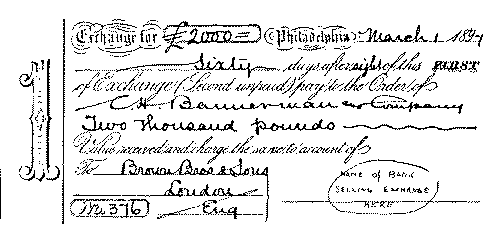 Exchange for £2000= Philadelphia March 1 1897
Sixty days after sight of this FIRST
of Exchange (Second unpaid) pay to the Order of
C.H. Bannerman & Company
Two thousand pounds
Value received and charge the same to account of
To Brown Bros & Sons
London
No. 376 Eng
NAME OF BANK
SELLING EXCHANGE
HERE